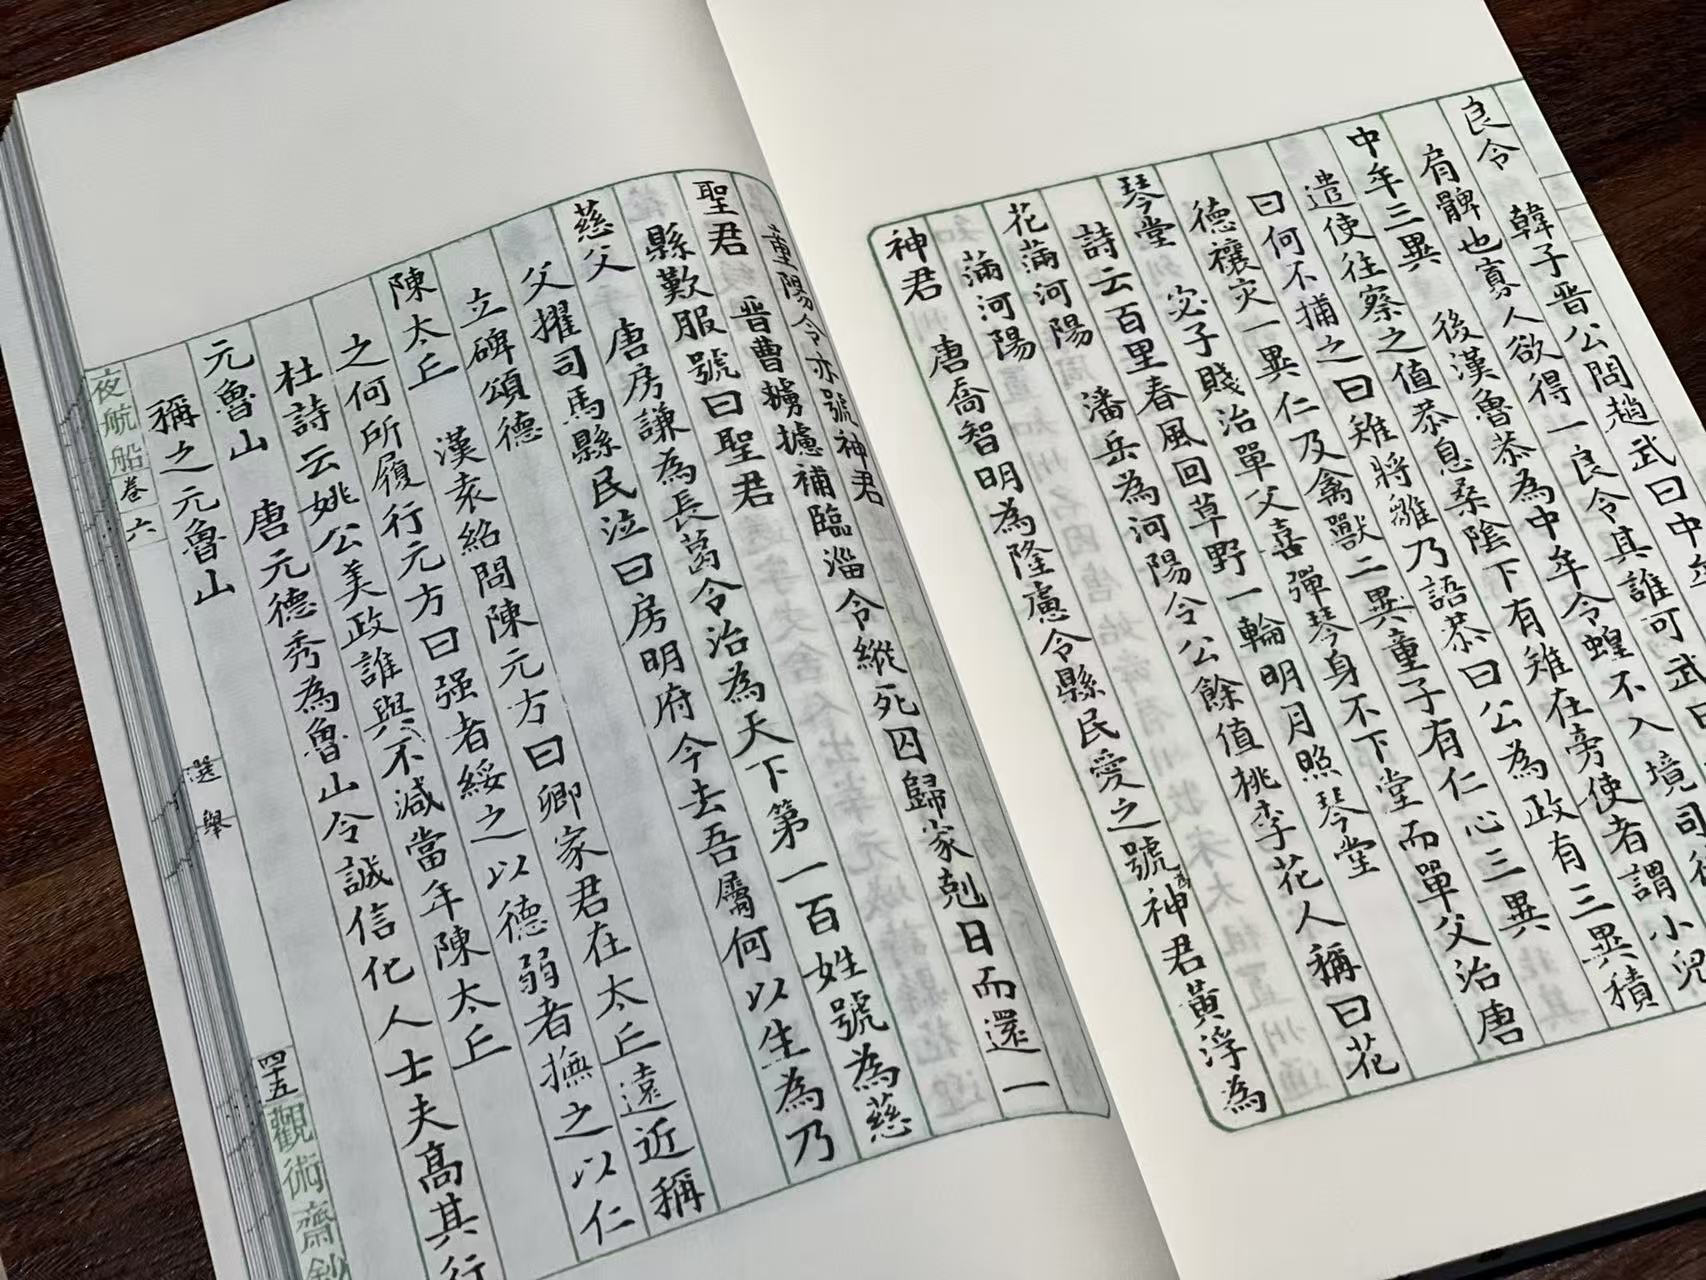 良令　韓子晋公問趙武曰中牟
肩髀也寡人欲得一良令其誰可武曰
中牟三異　後漢魯恭為中牟令蝗不入境司徒
遣使往察之值恭息桑陰下有雉在旁使者謂小兒
曰何不捕之曰雉將雛乃語恭曰公為政有三異積
德禳灾一異仁及禽獸二異童子有仁心三異
琴堂　宓子賤治單父喜彈琴身不下堂而單父治唐
詩云百里春風回草野一輪明月照琴堂
花滿河陽　潘岳為河陽令公餘值桃李花人稱曰花
滿河陽
神君　唐喬智明為隆慮令縣民愛之號為神君黃浮為
童陽令亦號神君
聖君　晋曹擄攄補臨淄令縱死囚歸家剋日而還一
縣歎服號曰聖君
慈父　唐房謙為長葛令治為天下第一百姓號為慈
父擢司馬縣民泣曰房明府今去吾屬何以生為乃
立碑頌德
陳太丘　漢袁紹問陳元方曰卿家君在太丘遠近稱
之何所履行元方曰强者綏之以德弱者撫之以仁
杜詩云姚公美政誰與不減當年陳太丘
元魯山　唐元德秀為魯山令誠信化人士夫高其行
稱之元魯山
夜航船卷六
選舉
四十五
觀術齋鈔